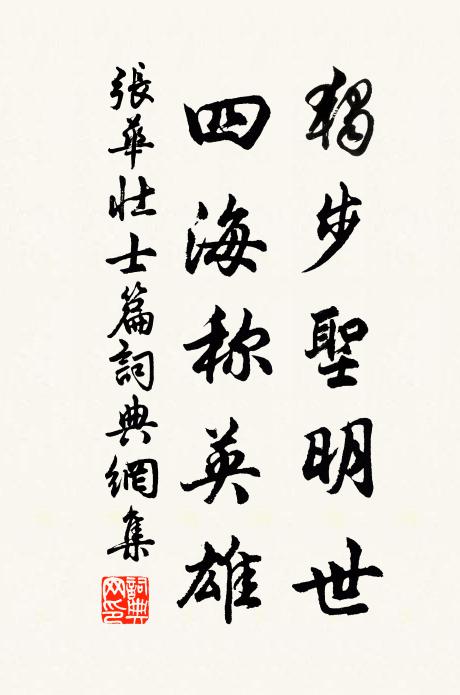 獨步聖明世
四海称英雄
張華壮士篇詞典網集
詞典网印